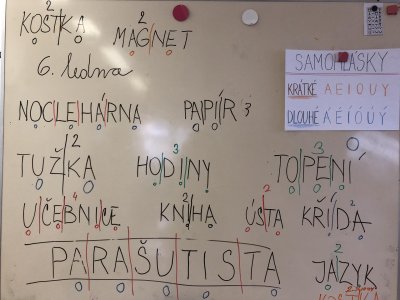 KOSTKA 2
MAGNET 2
6. ledna
SAMOHLÁSKY
KRÁTKÉ A E I O U Y
DLOUHÉ Á É Í Ó Ú Ý
NOCLEHÁRNA PAPÍR 3
TUŽKA 2 HODINY 3 TOPENÍ 3
UČEBNICE 4 KNIHA 2 ÚSTA 2 KŘÍDA 2
PARAŠUTISTA JAZYK 2